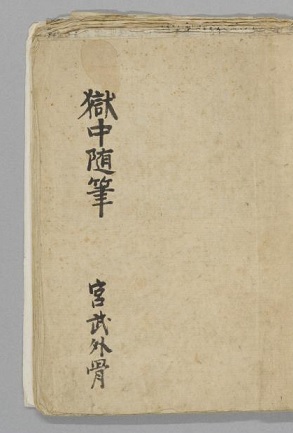 獄中随筆
宮武外骨